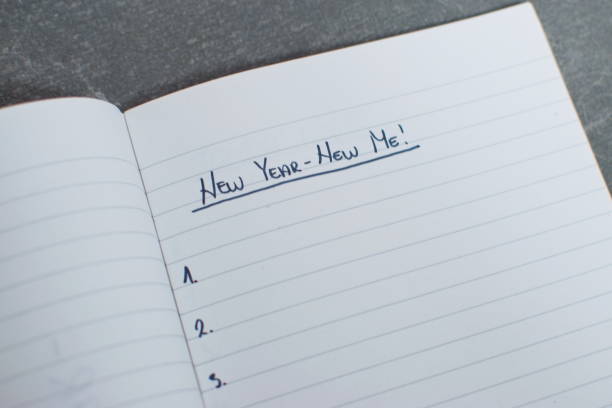 New Year - New Me!
1.
2.
3.